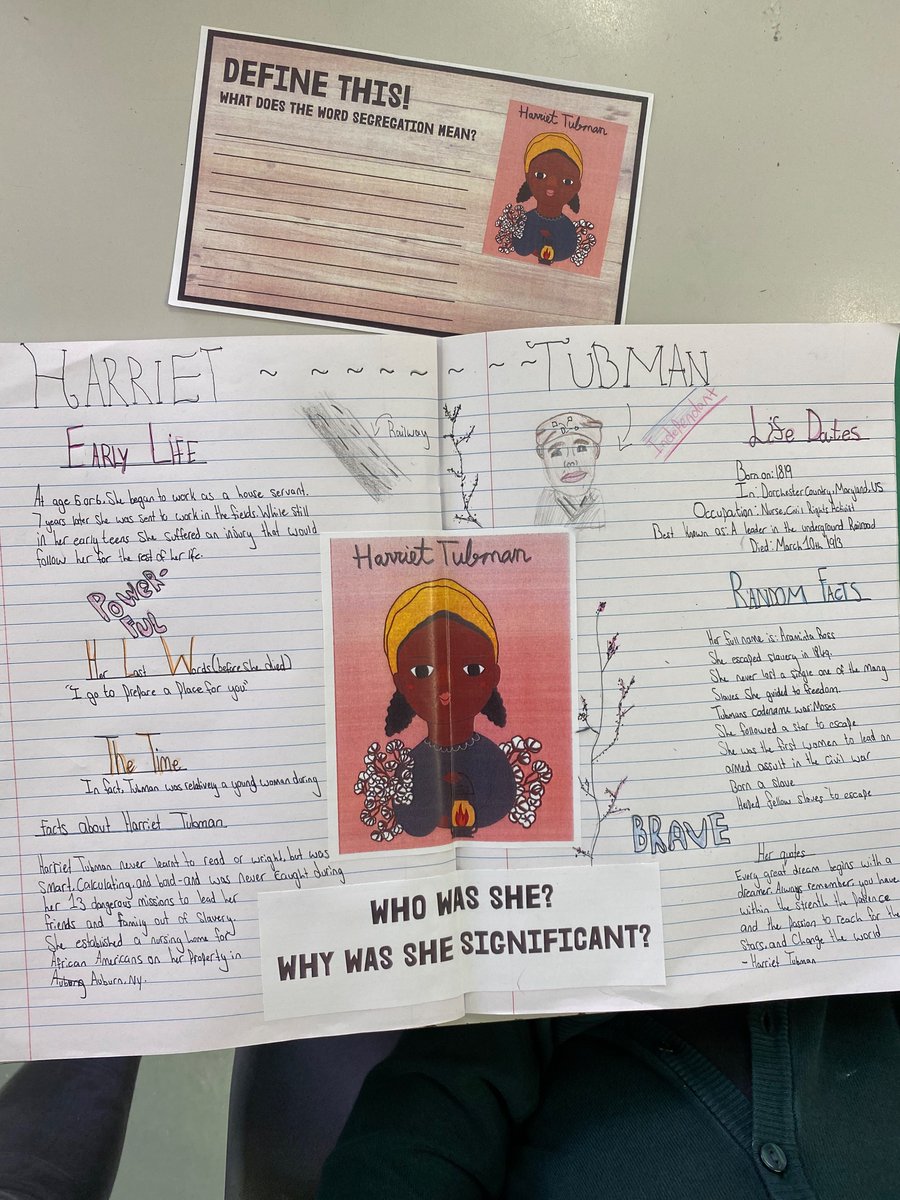 DEFINE THIS!
WHAT DOES THE WORD SEGREGATION MEAN?
Harriet Tubman
HARRIET ~ ~ ~ ~ ~ ~ ~ ~ TUBMAN
EARLY LIFE
At age 5 or 6, She began to work as a house servant.
7 years later she was sent to work in the fields. While still
in her early teens She suffered an injury that would
follow her for the rest of her life.
POWER-
FUL
Her Last Words (before she died)
"I go to prepare a Place for you"
The Time
In fact, Tubman was relatively a young woman during
Facts about Harriet Tubman
Harriet Tubman never learnt to read or wright, but was
smart, Calculating, and bold-and was never caught during
her 13 dangerous missions to lead her
friends and family out of slavery.
She established a nursing home for
African Americans on her property in
Auburn, NY.
Railway
Harriet Tubman
WHO WAS SHE?
WHY WAS SHE SIGNIFICANT?
Independant
Life Dates
Born on: 1819
In: Dorchester Country, Maryland, US
Occupation: Nurse, Civil Rights Activist
Best known as: A leader in the underground Railroad
Died: March 10th 1913
RANDOM FACTS
Her full name is: Araminta Ross
She escaped slavery in 1849.
She never lost a single one of the many
Slaves She guided to freedom.
Tubmans codename was: Moses
She followed a star to escape
She was the first women to lead an
armed assult in the Civil war
Born a slave
Helped fellow slaves to escape
BRAVE
Her quotes
Every great dream begins with a
dreamer. Always remember, you have
within the strenth the Patience
and the Passion to reach for the
Stars, and Change the world
- Harriet Tubman